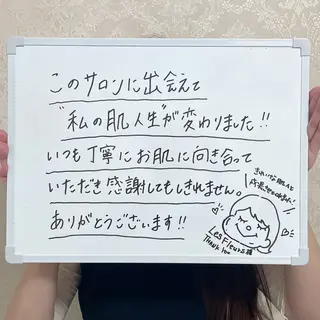 このサロンに出会えて
"私の肌人生"が変わりました!!
いつも丁寧にお肌に向き合って
いただき感謝してもしきれません。
ありがとうございます!!
きれいな肌へと
Les Fleurs様
Thank You